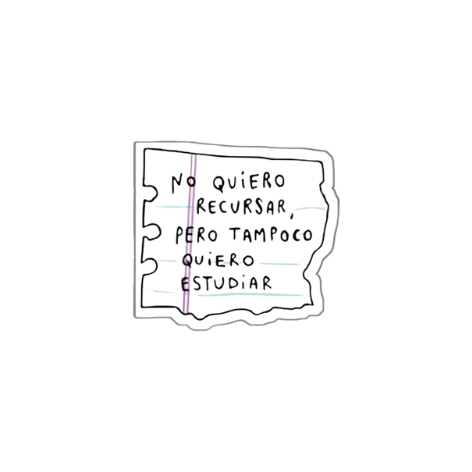 NO QUIERO
RECURSAR,
PERO TAMPOCO
QUIERO
ESTUDIAR